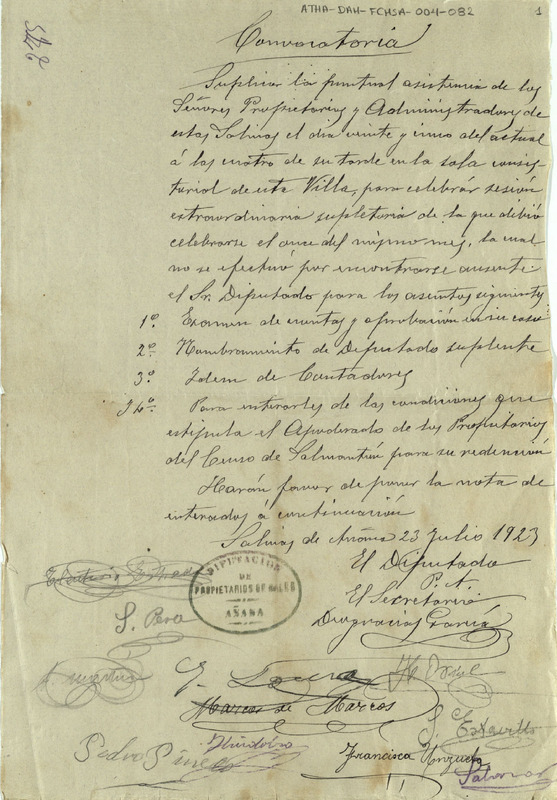 ATHA-DAH-FCHSA-004-082
1
Convocatoria
Suplica la puntual asistencia de los
Señores Propietarios y Administradores de
estas Salinas el dia veinte y cinco del actual
á las cuatro de su tarde en la sala consis-
torial de esta Villa, para celebrar sesión
extraordinaria supletoria de la que debió
celebrarse el once del mismo mes, la cual
no se efectuó por encontrarse ausente
el Sr. Diputado para los asuntos siguientes
1º. Examen de cuentas y aprobación en su caso
2º. Nombramiento de Diputado suplente
3º. Idem de Contadores
4º. Para enterarles de las condiciones que
estipula el Apoderado de los Propietarios
del Censo de Salmantón para su redención
Harán favor de poner la nota de
enterados á continuación
Salinas de Añana 23 Julio 1923
El Diputado
P. A.
El Secretario
Deogracias García
DIPUTACION
DE
PROPIETARIOS DE SALES
AÑANA
Marcos de Marcos
Pedro
Francisca